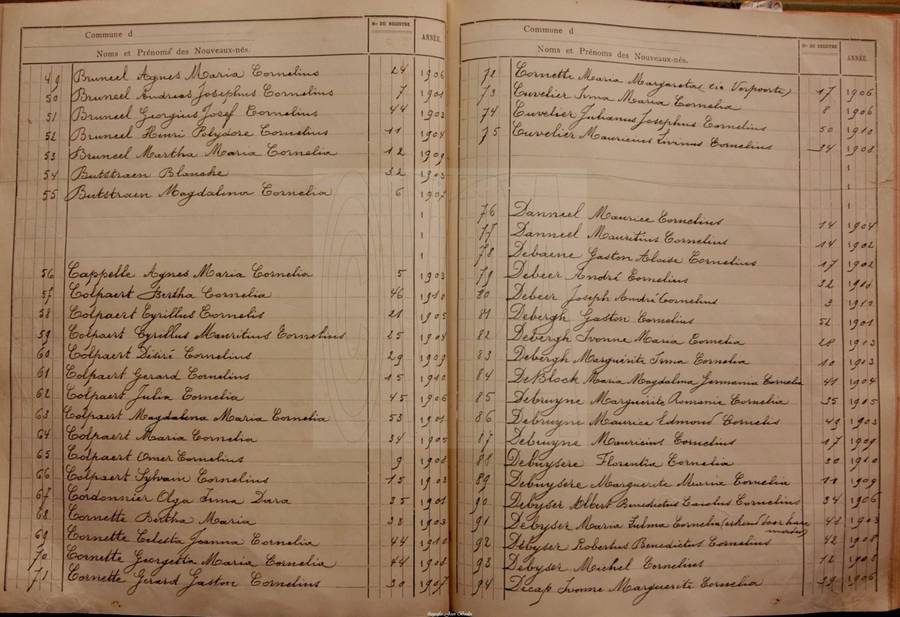 Commune d
Noms et Prénoms des Nouveaux-nés.
No DU REGISTRE
ANNÉE.
49 Bruneel Agnes Maria Cornelius 24 1906
50 Bruneel Andreas Josephus Cornelius 7 1901
51 Bruneel Georgius Josef Cornelius 44 1903
52 Bruneel Henri Polydore Cornelius 11 1904
53 Bruneel Martha Maria Cornelia 12 1909
54 Butstraen Blanche 32 1903
55 Butstraen Magdalena Cornelia 6 1907
56 Cappelle Agnes Maria Cornelia 5 1903
57 Colpaert Bertha Cornelia 46 1910
58 Colpaert Cyrillus Cornelis 21 1905
59 Colpaert Cyrillus Mauritius Cornelius 25 1904
60 Colpaert Désiré Cornelius 29 1909
61 Colpaert Gerard Cornelius 15 1910
62 Colpaert Julia Cornelia 45 1906
63 Colpaert Magdalena Maria Cornelia 53 1901
64 Colpaert Maria Cornelia 34 1905
65 Colpaert Omer Cornelius 9 1908
66 Colpaert Sylvain Cornelius 15 1903
67 Cordonnier Olga Irma Dara 35 1901
68 Cornette Bertha Maria 38 1903
69 Cornette Celesta Joanna Cornelia 44 1910
70 Cornette Georgetta Maria Cornelia 44 1908
71 Cornette Gerard Gaston Cornelius 30 1907
Commune d
Noms et Prénoms des Nouveaux-nés.
No DU REGISTRE
ANNÉE.
72 Cornette Maria Margareta (zie Verpoorte) 17 1906
73 Cuvelier Irma Maria Cornelia 8 1906
74 Cuvelier Julianus Josephus Cornelius 50 1910
75 Cuvelier Mauricius Livinus Cornelius 34 1908
76 Danneel Maurice Cornelius 14 1904
77 Danneel Mauritius Cornelius 14 1902
78 Debaene Gaston Aloise Cornelius 17 1902
79 Debeer André Cornelius 32
80 Debeer Joseph André Cornelius 3 1910
81 Debergh Gaston Cornelius 52 1901
82 Debergh Ivonne Maria Cornelia 28 1903
83 Debergh Marguerite Irma Cornelia 10 1903
84 DeBlock Maria Magdalena Germania Cornelia 41 1904
85 Debruyne Marguerite Romanie Cornelia 35 1905
86 Debruyne Maurice Edmond Cornelis 49 1903
87 Debruyne Mauricius Cornelius 17 1909
88 Debuysere Florentia Cornelia 30 1910
89 Debuysere Marguerite Maria Cornelia 11 1909
90 Debyser Albert Benedictus Carolus Cornelius 34 1906
91 Debyser Maria Zulma Cornelia (erkend door hare moeder) 48 1903
92 Debyser Robertus Benedictus Cornelius 42 1908
93 Debyser Michel Cornelius 12 1908
94 Decap Ivonne Marguerite Cornelia 39 1906